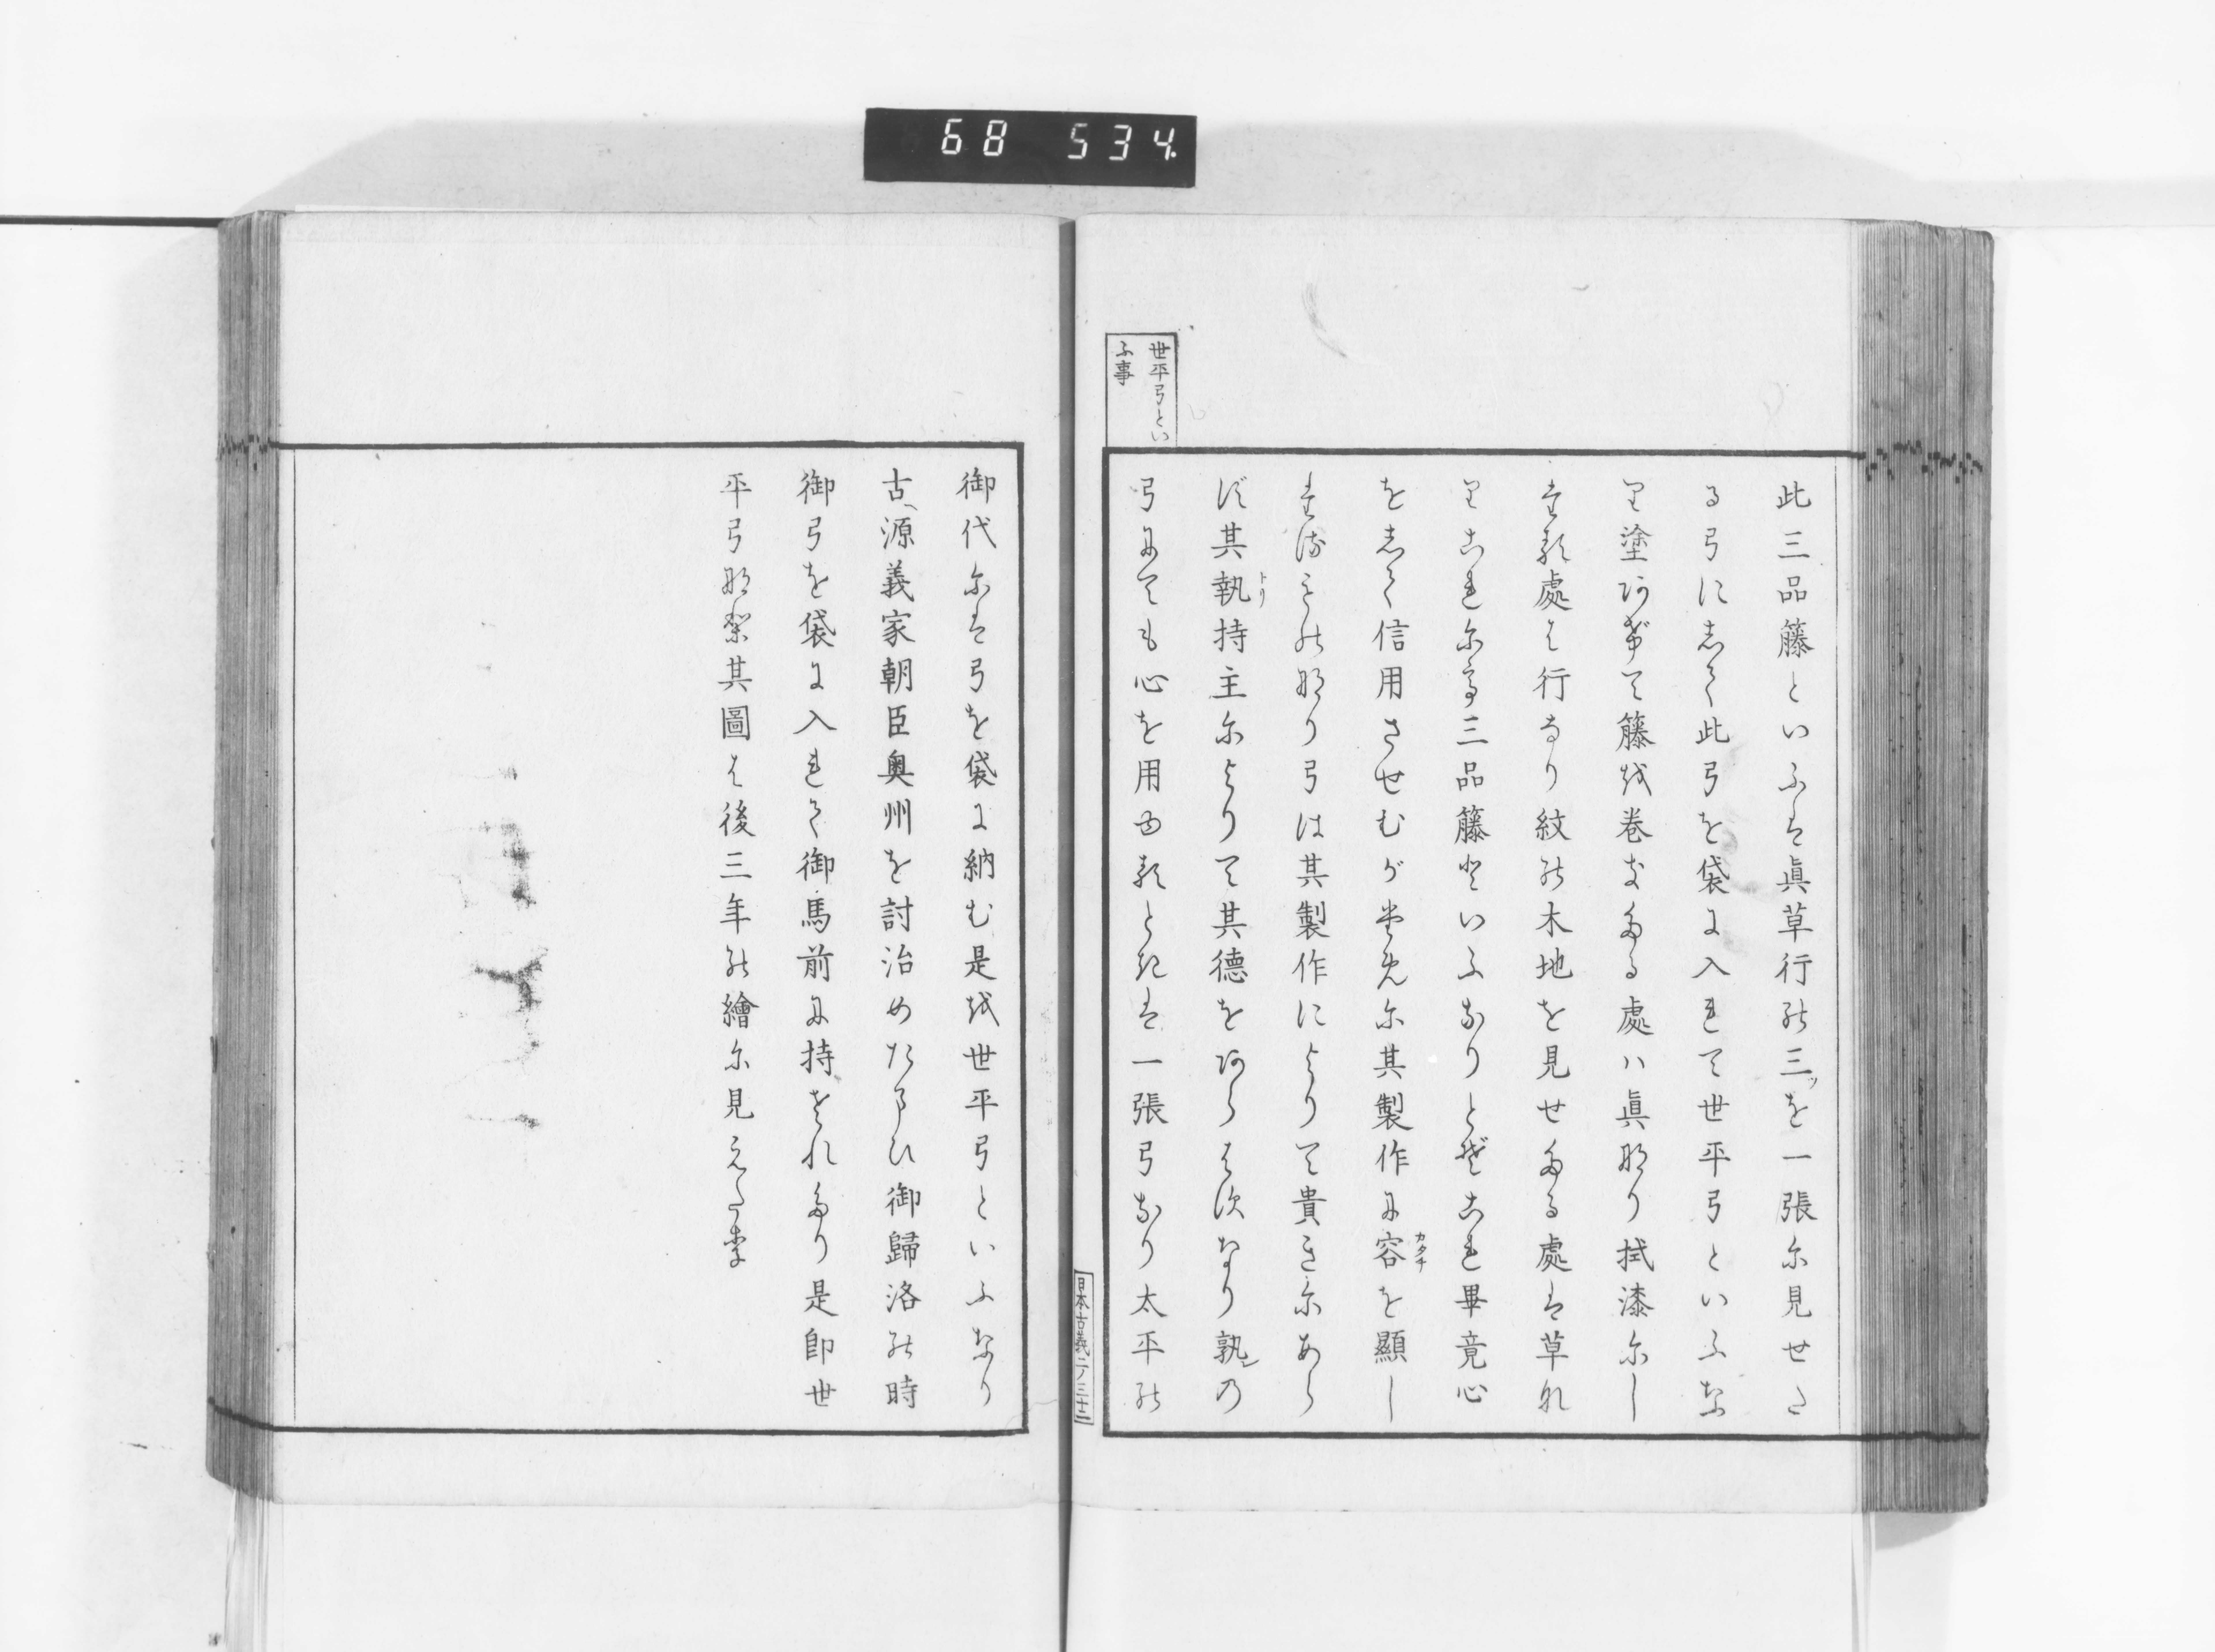 68 534
世平弓とい
ふ事
此三品籐といふは眞草行の三ツを一張に見せた
る弓にして此弓を袋に入れて世平弓といふな
り塗あげて籐を巻きたる處ハ眞なり拭漆にし
たる處は行なり紋の木地を見せたる處は草な
りこれに三品籐といふなりとぞこれ畢竟心
をして信用させむがために其製作に容カタチを顯し
たるものなり弓は其製作によりて貴きにあら
ず其執トリ持主によりて其德をあらはすなり孰レの
弓にても心を用ゆるときは一張弓なり太平の
日本古義二ノ三十二
御代には弓を袋に納む是を世平弓といふなり
古ヘ源義家朝臣奥州を討治めたまひ御歸洛の時
御弓を袋に入れて御馬前に持されたり是卽世
平弓なり其圖は後三年の繪に見えたり